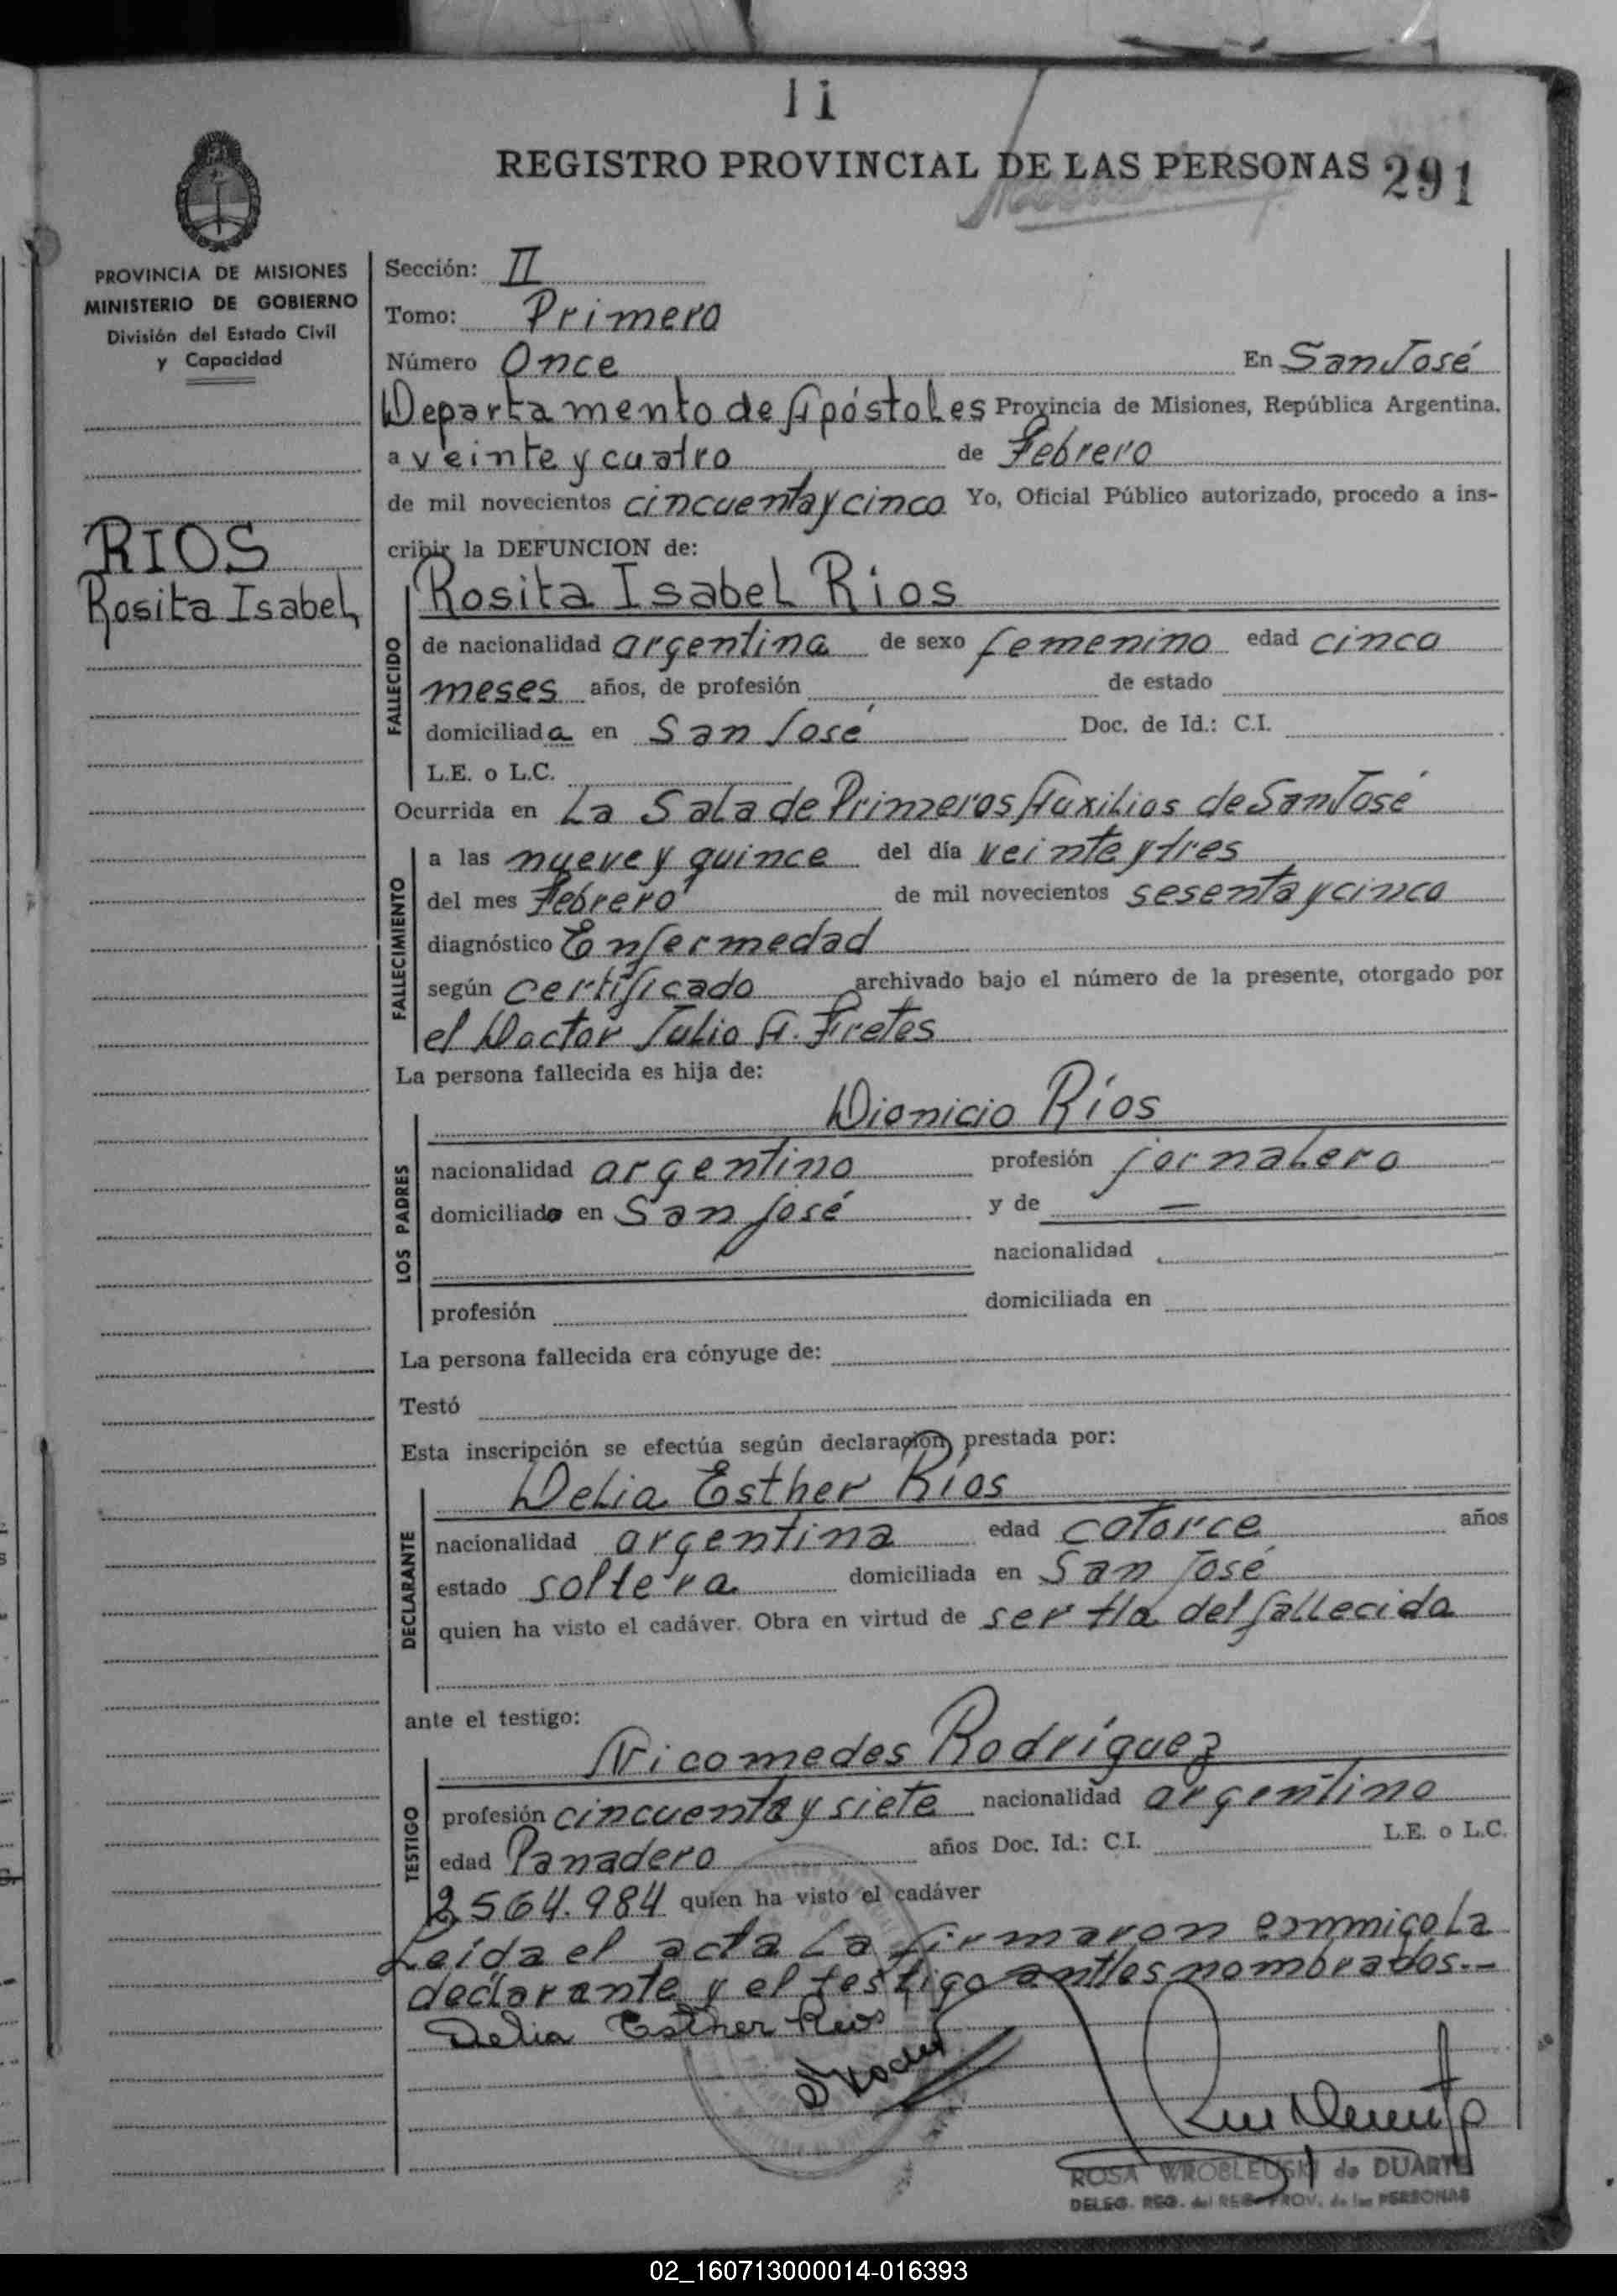 11
REGISTRO PROVINCIAL DE LAS PERSONAS 291
PROVINCIA DE MISIONES
MINISTERIO DE GOBIERNO
División del Estado Civil
y Capacidad
RIOS
Rosita Isabel
Sección: II
Tomo: Primero
Número Once En San José
Departamento de Apóstoles Provincia de Misiones, República Argentina.
a veinte y cuatro de Febrero
de mil novecientos cincuenta y cinco Yo, Oficial Público autorizado, procedo a ins-
cribir la DEFUNCION de:
FALLECIDO
Rosita Isabel Rios
de nacionalidad argentina de sexo femenino edad cinco
meses años, de profesión de estado
domiciliada en San José Doc. de Id.: C.I.
L.E. o L.C.
Ocurrida en La Sala de Primeros Auxilios de San José
FALLECIMIENTO
a las nueve y quince del día veinte y tres
del mes Febrero de mil novecientos sesenta y cinco
diagnóstico Enfermedad
según certificado archivado bajo el número de la presente, otorgado por
el Doctor Julio A. Fretes
La persona fallecida es hija de:
LOS PADRES
Dionicio Ríos
nacionalidad argentino profesión jornalero
domiciliado en San José y de —
nacionalidad
profesión domiciliada en
La persona fallecida era cónyuge de:
Testó
Esta inscripción se efectúa según declaración prestada por:
DECLARANTE
Delia Esther Ríos
nacionalidad argentina edad catorce años
estado soltera domiciliada en San José
quien ha visto el cadáver. Obra en virtud de ser tía del fallecido
ante el testigo:
TESTIGO
Nicomedes Rodríguez
profesión cincuenta y siete nacionalidad argentino
edad Panadero años Doc. Id.: C.I. L.E. o L.C.
2,564.984 quien ha visto el cadáver
Leída el acta La firmaron conmigo La
declarante y el testigo antes nombrados.--
Delia Esther Rios
ROSA WROBLEUSKI de DUARTE
DELEG. REG. del REG. PROV. de las PERSONAS
02_160713000014-016393